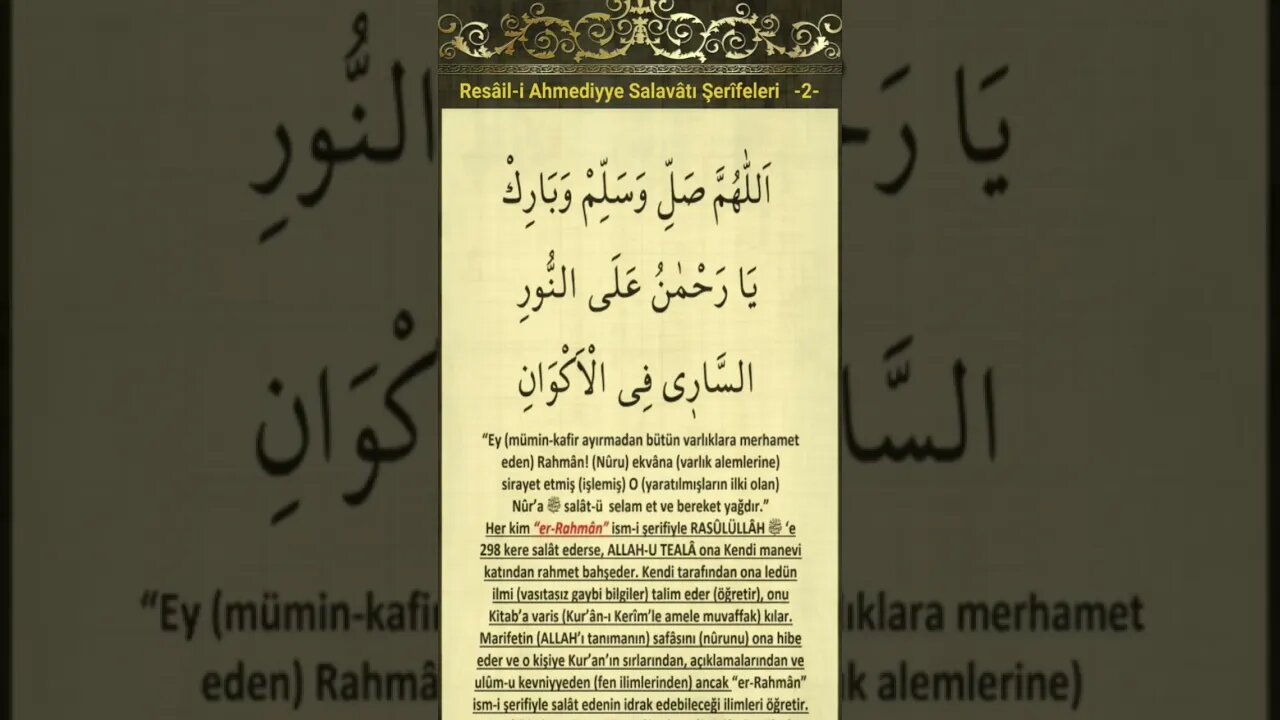 Resâil-i Ahmediyye Salavâtı Şerîfeleri -2-
اَللّٰهُمَّ صَلِّ وَسَلِّمْ وَبَارِكْ
يَا رَحْمٰنُ عَلَى النُّورِ
السَّارِى فِى الْاَكْوَانِ
“Ey (mümin-kafir ayırmadan bütün varlıklara merhamet
eden) Rahmân! (Nûru) ekvâna (varlık alemlerine)
sirayet etmiş (işlemiş) O (yaratılmışların ilki olan)
Nûr’a ﷺ salât-ü selam et ve bereket yağdır.”
Her kim “er-Rahmân” ism-i şerifiyle RASÛLÜLLÂH ﷺ ‘e
298 kere salât ederse, ALLAH-U TEALÂ ona Kendi manevi
katından rahmet bahşeder. Kendi tarafından ona ledün
ilmi (vasıtasız gaybi bilgiler) talim eder (öğretir), onu
Kitab’a varis (Kur’ân-ı Kerîm’le amele muvaffak) kılar.
Marifetin (ALLAH’ı tanımanın) safâsını (nûrunu) ona hibe
eder ve o kişiye Kur’an’ın sırlarından, açıklamalarından ve
ulûm-u kevniyyeden (fen ilimlerinden) ancak “er-Rahmân”
ism-i şerifiyle salât edenin idrak edebileceği ilimleri öğretir.